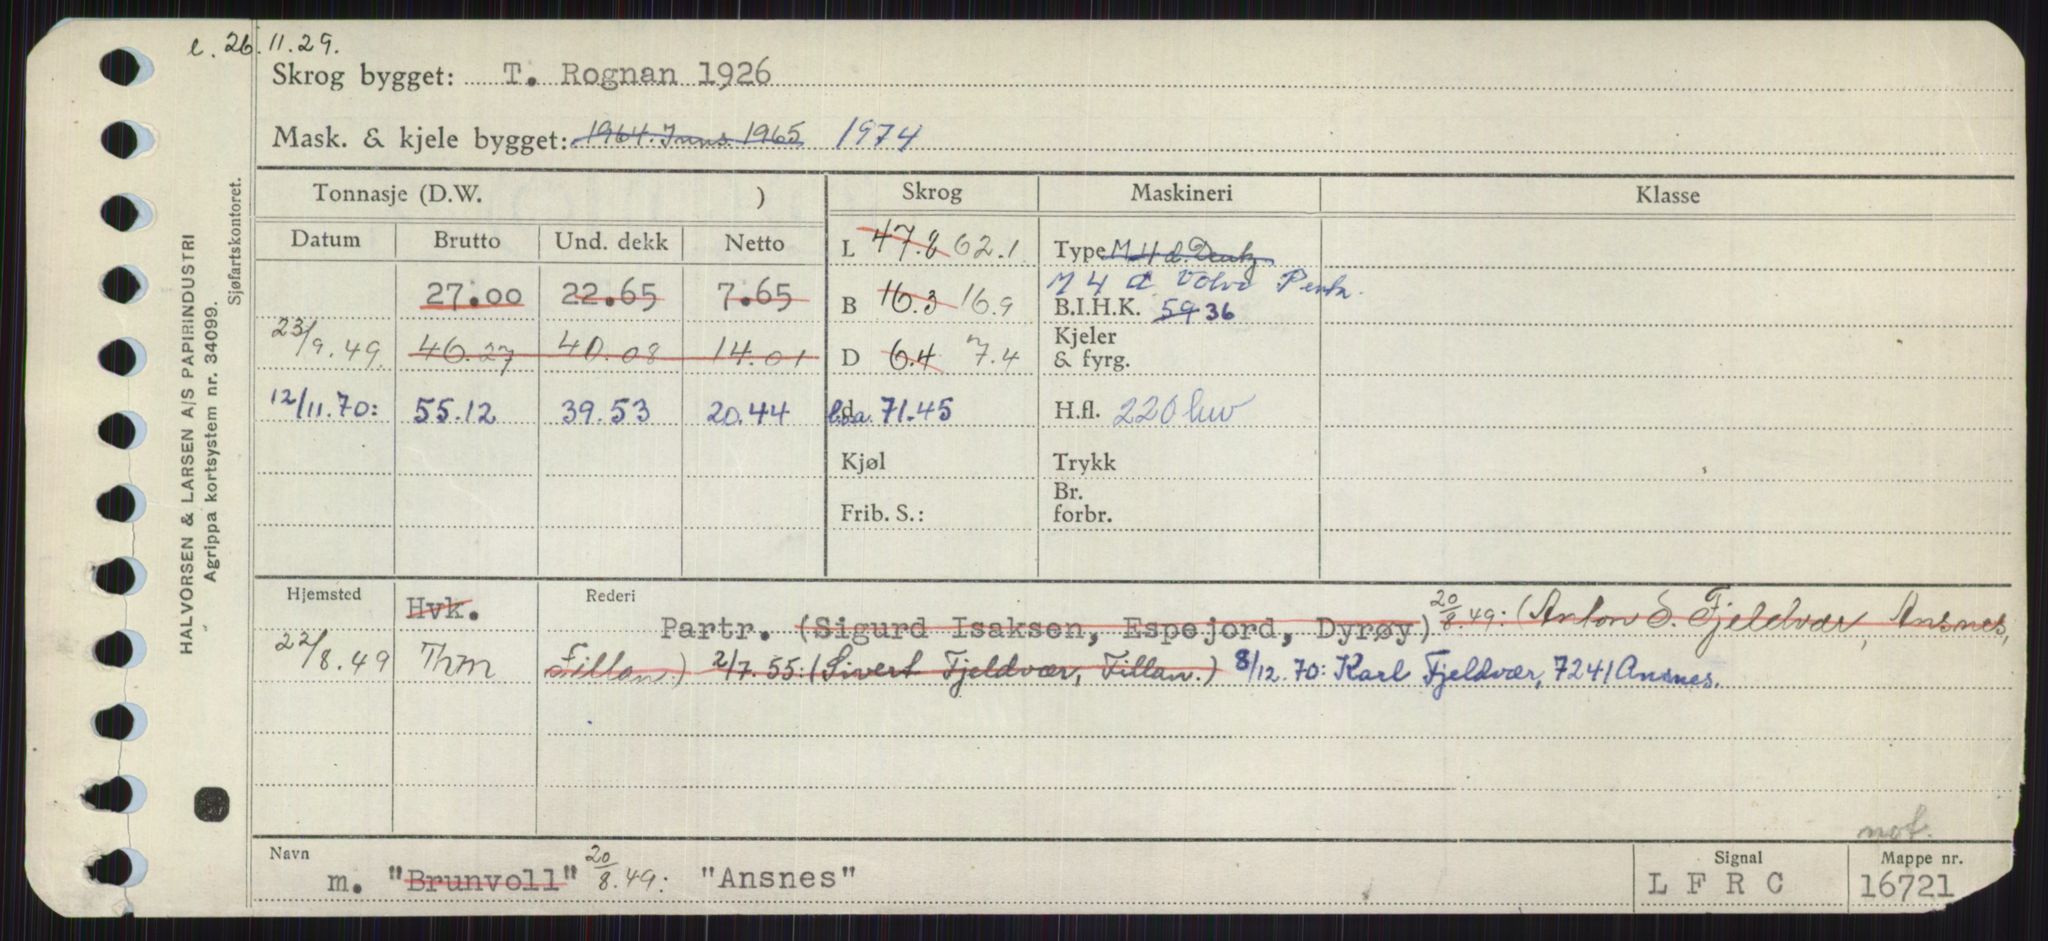 e. 26.11.29.
Skrog bygget: T. Rognan 1926
Mask. & kjele bygget: 1964. Inns. 1965 1974
Tonnasje (D.W. ) Skrog Maskineri Klasse
Datum Brutto Und. dekk Netto L 47.8 62.1 Type M 4 d. Deutz
M 4 d Volvo Penta.
27.00 22.65 7.65 B 16.3 16.9 B.I.H.K. 59 36
23/9.49. 46.27 40.08 14.01 D 6.4 7.4 Kjeler
& fyrg.
12/11.70: 55.12 39.53 20.44 d l.o.a. 71.45 H.fl. 220 hw
Kjøl Trykk
Br.
Frib. S.: forbr.
Hjemsted Hvk. Rederi Partr. (Sigurd Isaksen, Espejord, Dyrøy) 20/8.49: (Anton S. Fjeldvær, Ansnes,
22/8.49 Thm Fillan.) 2/7.55: (Sivert Fjeldvær, Fillan.) 8/12.70: Karl Fjeldvær, 7241 Ansnes.
not.
Navn Signal Mappe nr.
m. "Brunvoll" 20/8.49: "Ansnes" L F R C 16721
HALVORSEN & LARSEN A/S PAPIRINDUSTRI
Agrippa kortsystem nr. 34099.
Sjøfartskontoret.